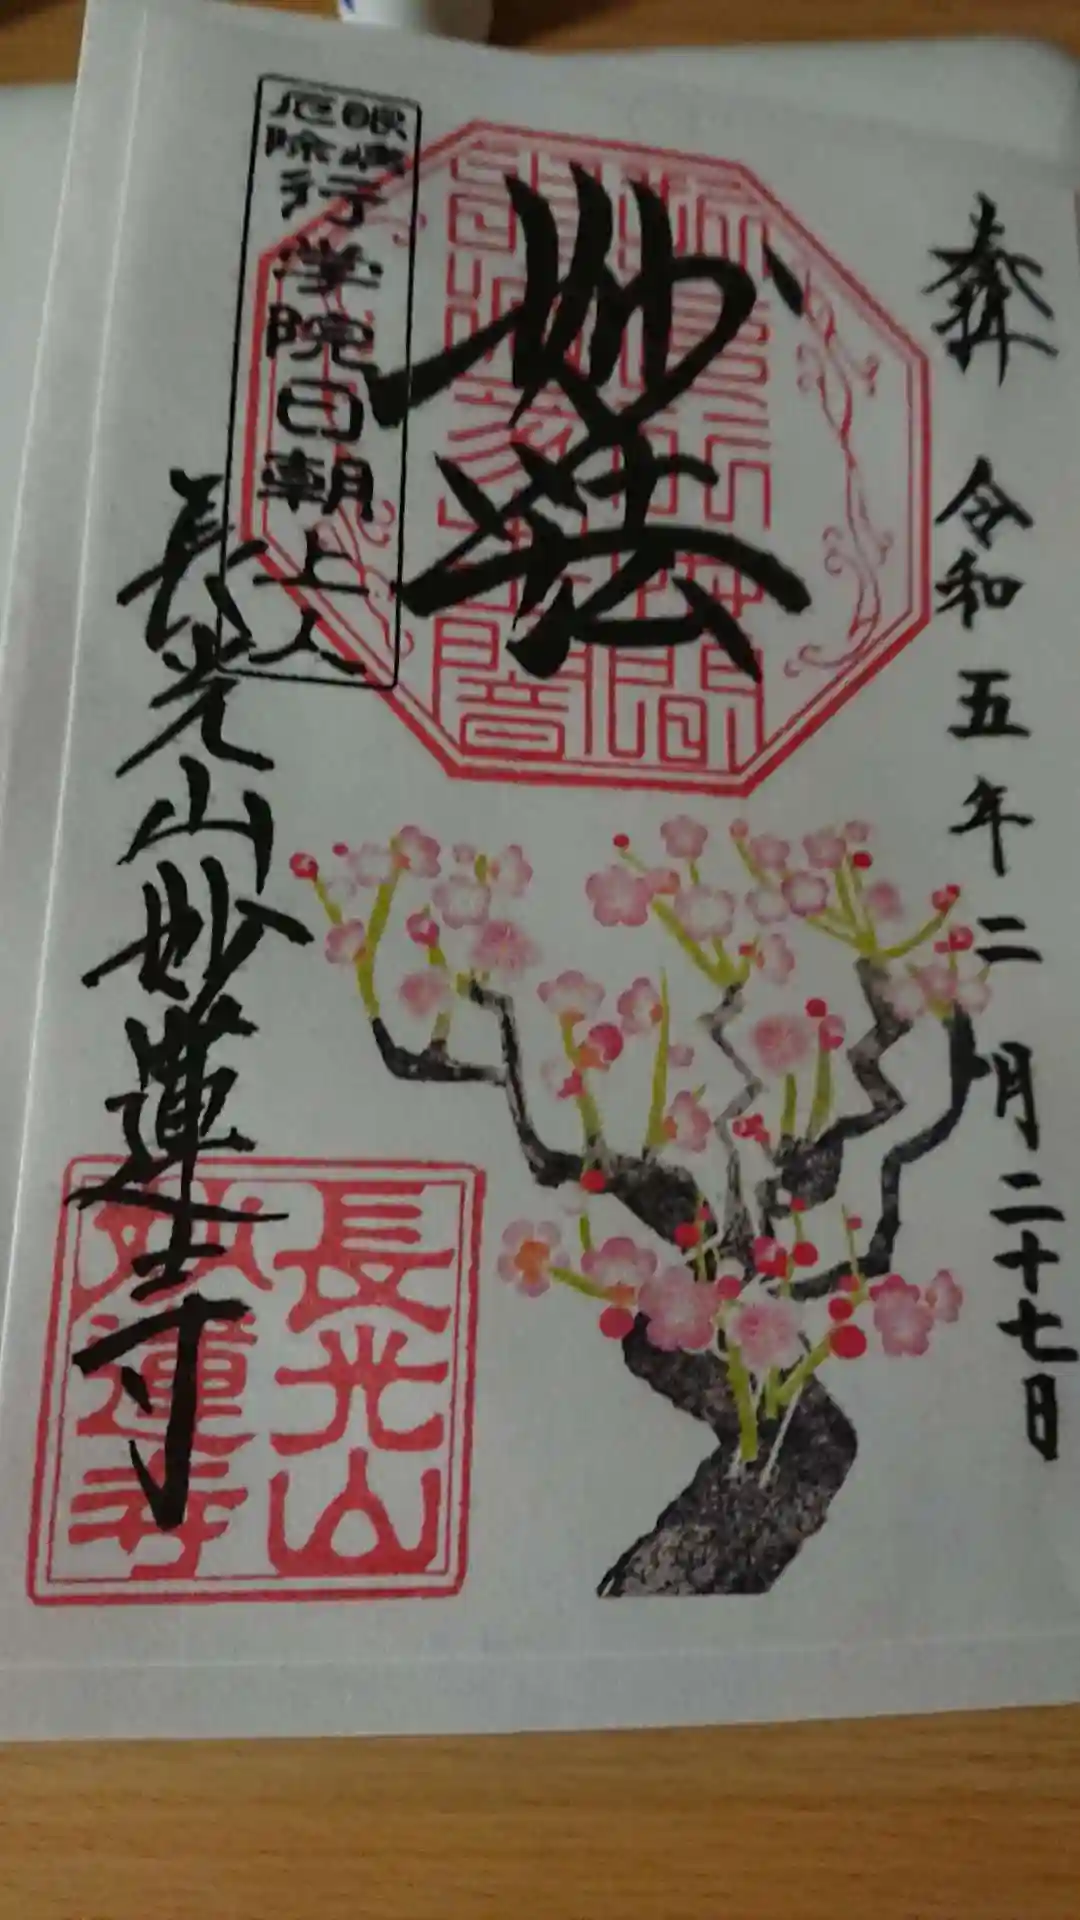 奉拝
令和五年二月二十七日
妙法
眼病
厄除
行学院日朝上人
長光山妙蓮寺
長光山
妙蓮寺